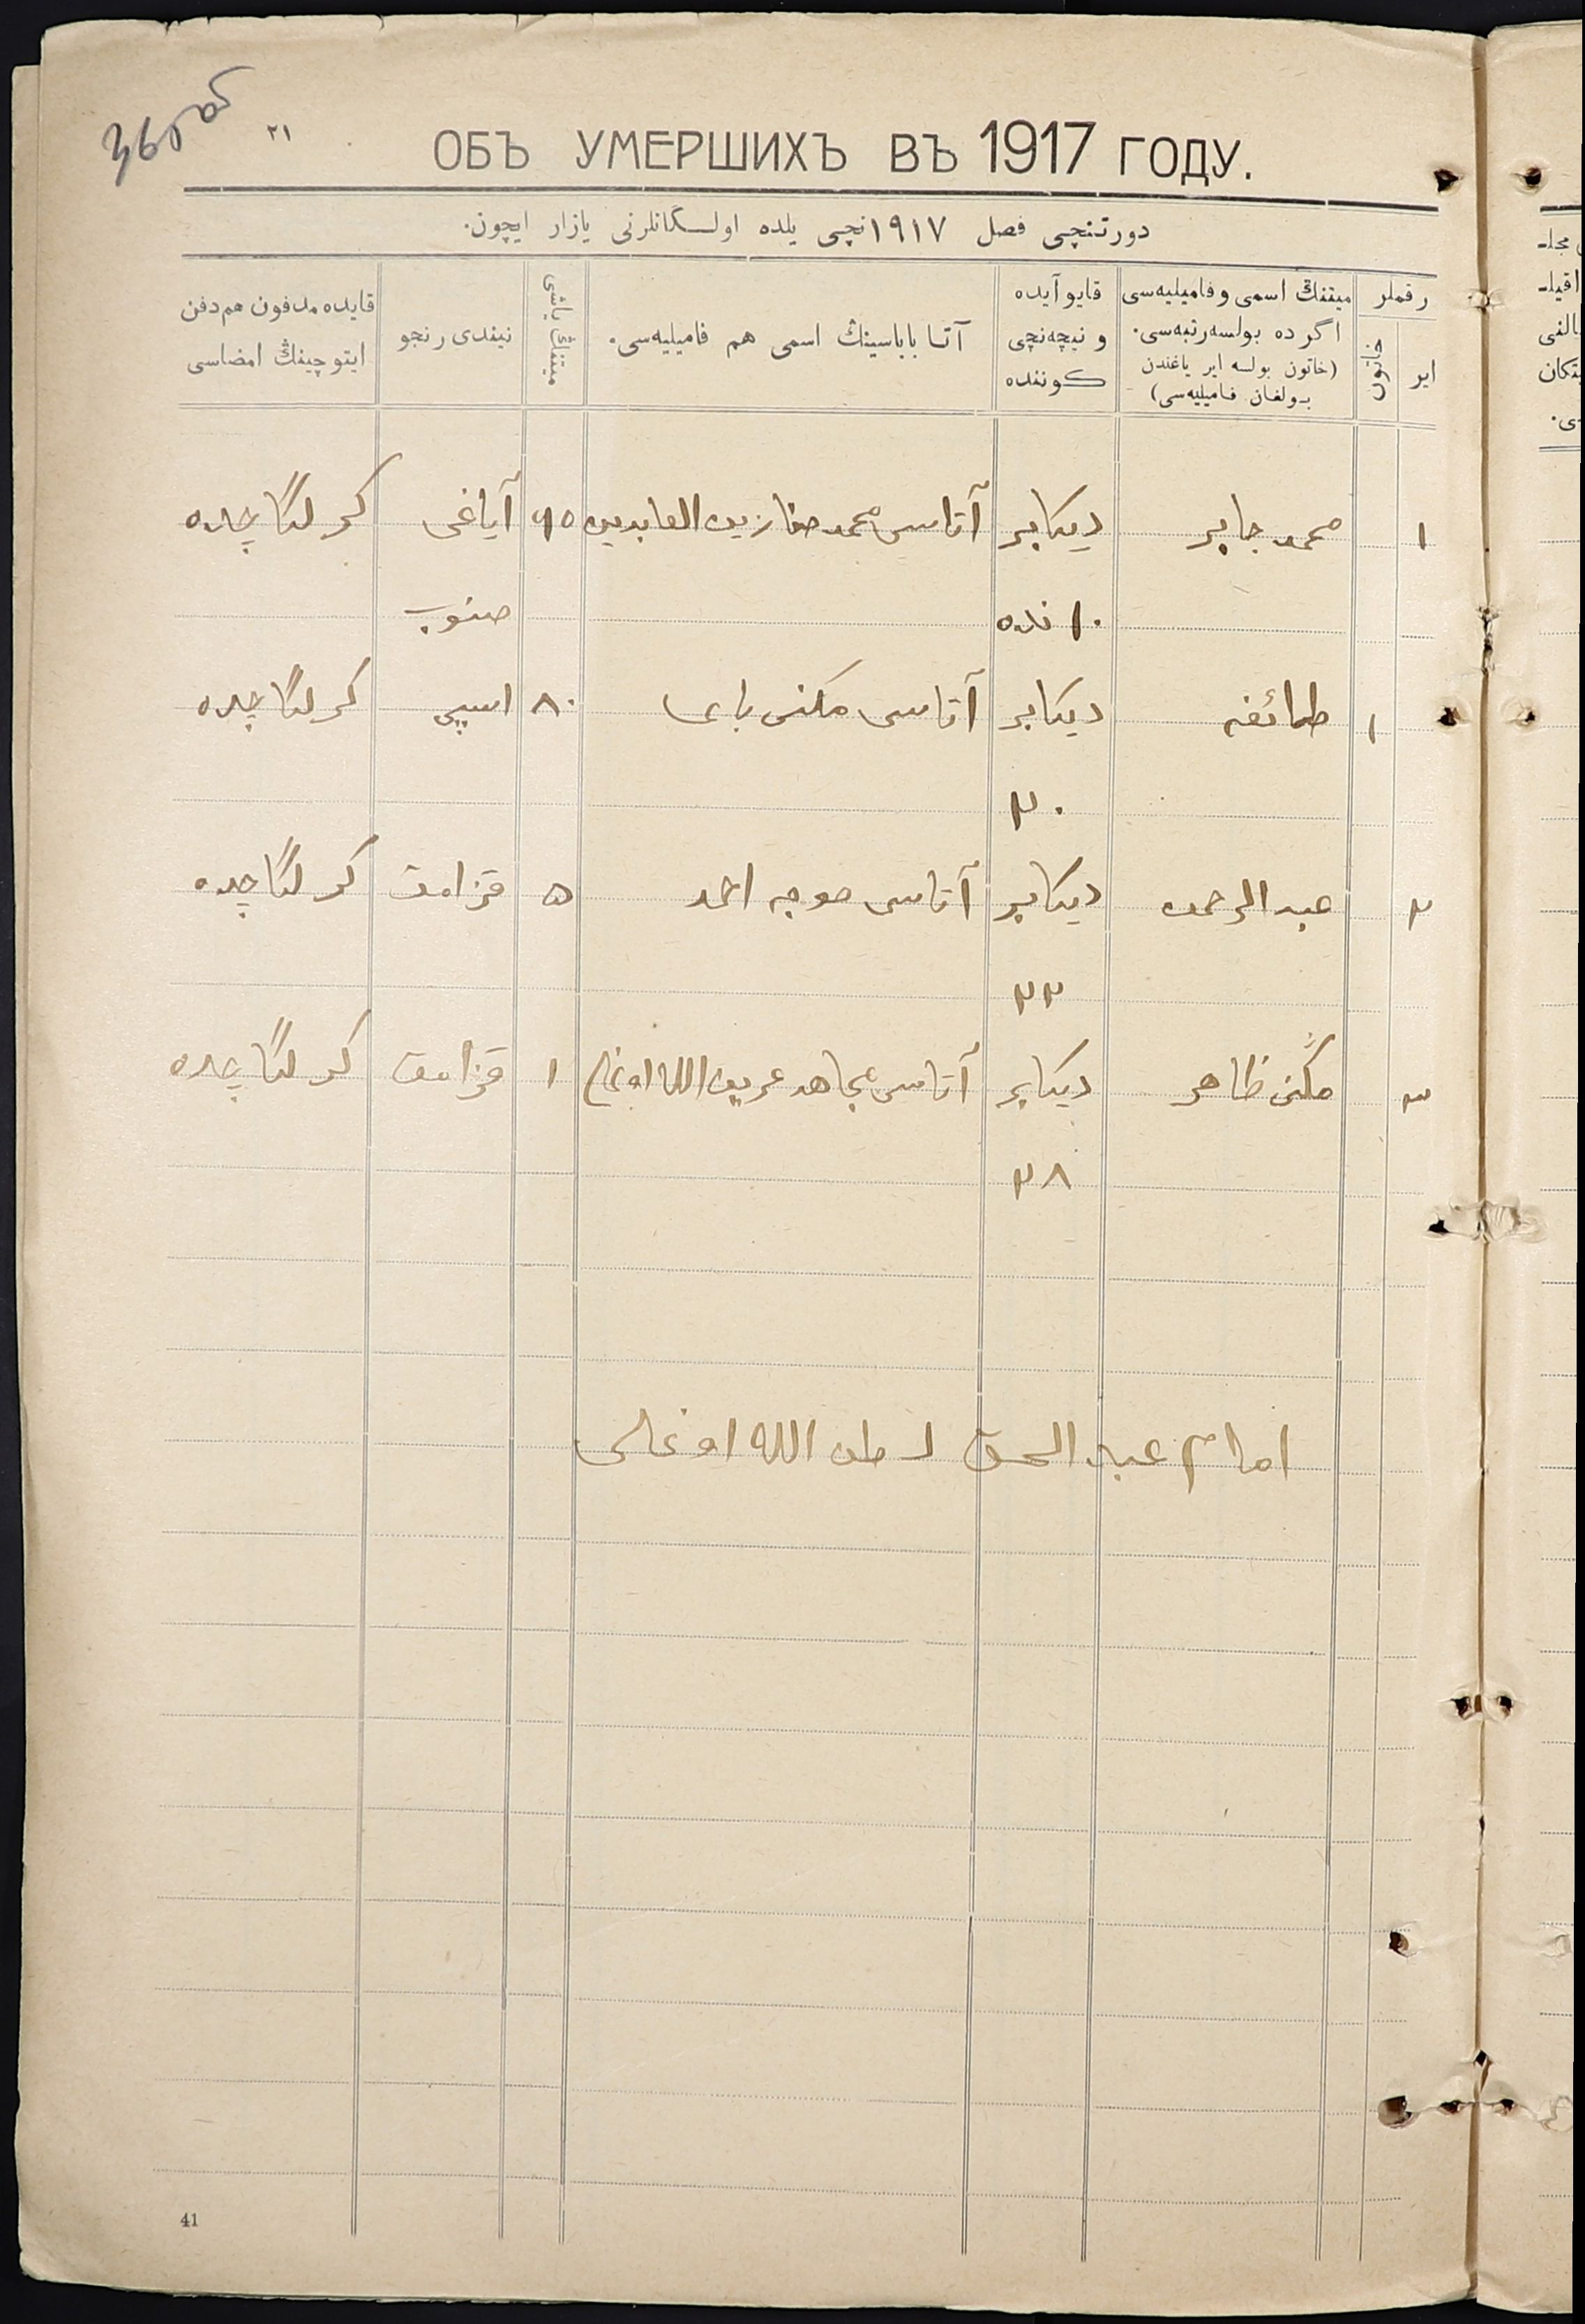 ٢١
ОБЪ УМЕРШИХЪ ВЪ 1917 ГОДУ.
دورتنچی فصل ١٩١٧نچی یلده اولـگانلرنی یازار ایچون.
رقملر
ایر
خاتون
میتنڭ اسمی وفامیلیه‌سی
اگرده بولسه‌رتبه‌سی.
(خاتون بولسه ایر یاغندن
بـولغان فـامیلیه‌سی)
قایو آیده
و نیچه‌نچی
کوننده
آتـا باباسینڭ اسمی هم فامیلیه‌سی.
میتنڭ یاشی
نیندی رنجو
قایده مدفون هم دفن
ایتوچینڭ امضاسی
١ محمد جابر دیکابر آتاسی محمد صفا زین العابدین ٦٥ آیاغی کرلگاچده
١٠نده
١ دیکابر آتاسی ٨٠ کرلگاچده
٢٠
٢ عبد الرحمن دیکابر آتاسی خوجه احمد ٥ قزامق کرلگاچده
٢٢
٣ ظاهر دیکابر آتاسی مجاهد ١ قزامق کرلگاچده
٢٨
امام عبد الحق لطف الله اوغلی
41